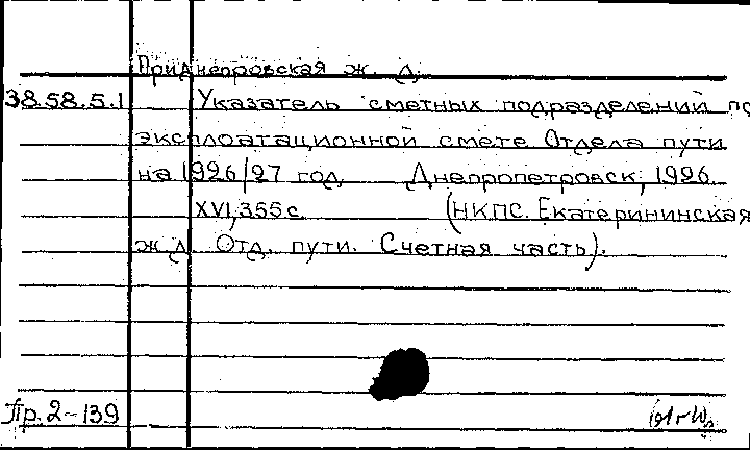 Приднепровская ж. д.
38.58.5.1 Указатель сметных подразделений по
эксплоатационной смете Отдела пути
на 1926/27 год. Днепропетровск, 1926.
XVI, 355 с. (НКПС. Екатерининская
ж.д. Отд. пути. Счетная часть).
Пр. 2-139